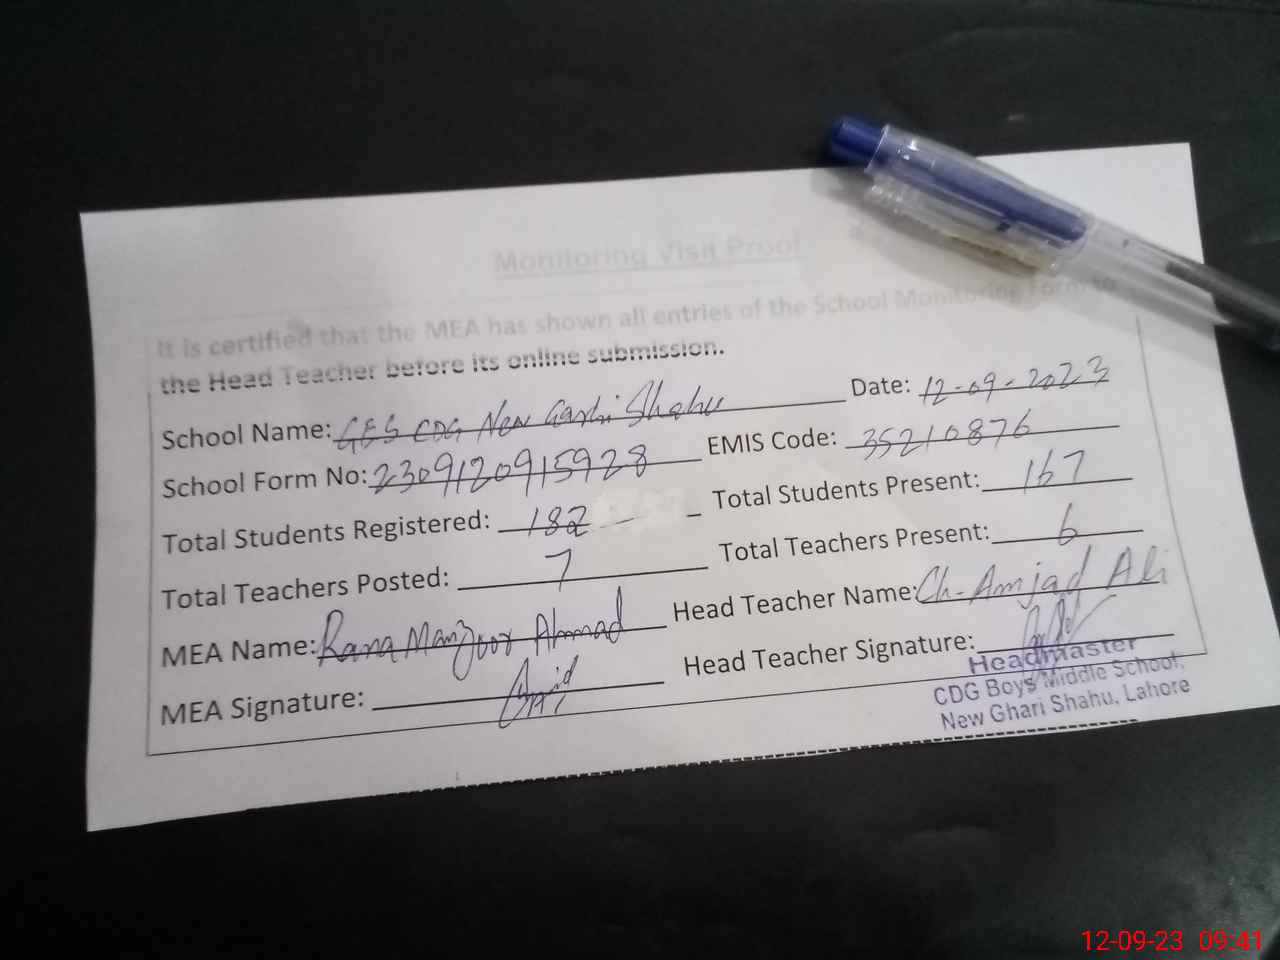 Monitoring Visit Proof
It is certified that the MEA has shown all entries of the School Monitoring Form to
the Head Teacher before its online submission.
School Name: GES CDG New Garhi Shahu Date: 12-09-2023
School Form No: 2309120915928 EMIS Code: 35210876
Total Students Registered: 182 Total Students Present: 167
Total Teachers Posted: 7 Total Teachers Present: 6
MEA Name: Rana Manzoor Ahmad Head Teacher Name: Ch. Amjad Ali
MEA Signature: Head Teacher Signature:
Headmaster
CDG Boys Middle School,
New Ghari Shahu, Lahore
12-09-23 09:41